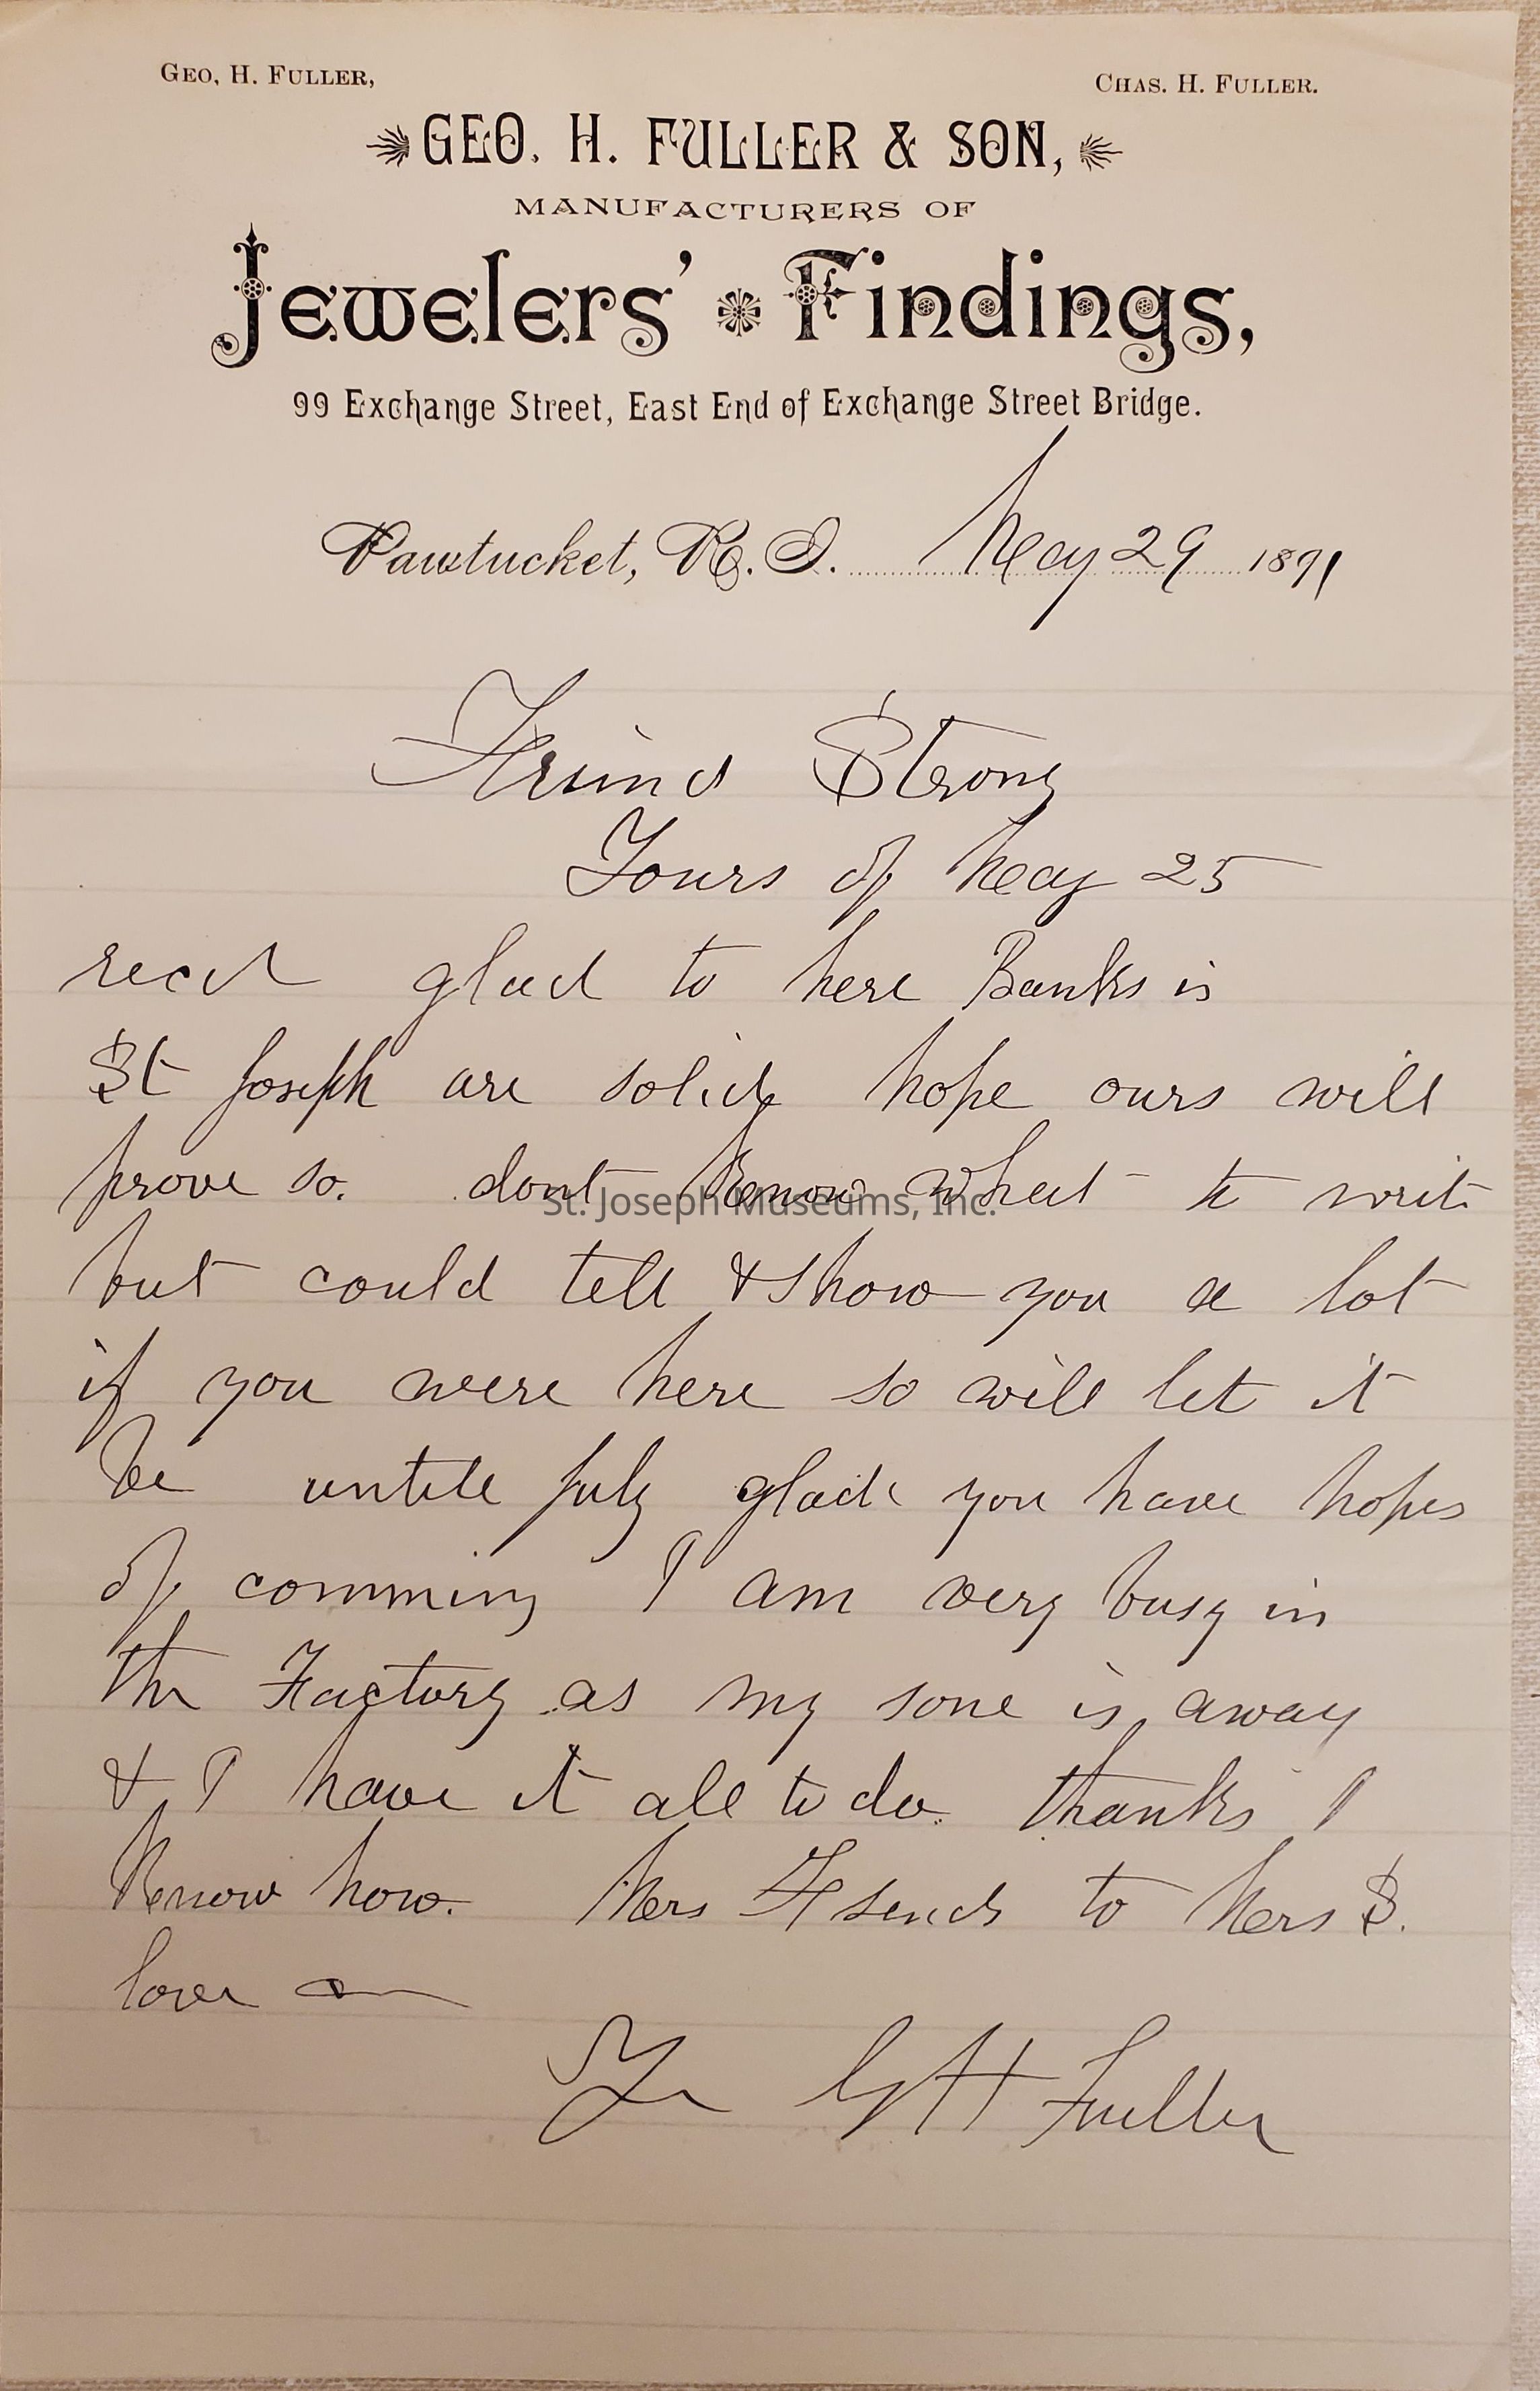 GEO. H. FULLER, CHAS. H. FULLER.
GEO. H. FULLER & SON,
MANUFACTURERS OF
Jewelers' Findings,
99 Exchange Street, East End of Exchange Street Bridge.
Pawtucket, R. I. May 29 1891
Friend Strong
Yours of May 25
recd glad to here Banks is
St Joseph are solid hope ours will
prove so. dont know what to write
St. Joseph Museums, Inc.
but could tell & show you a lot
if you were here so will let it
be untill July glad you have hopes
of comming I am very busy in
the Factory as my sone is away
& I have it all to do. thanks I
know how. Mrs F sends to Mrs S.
love
Yr G H Fuller